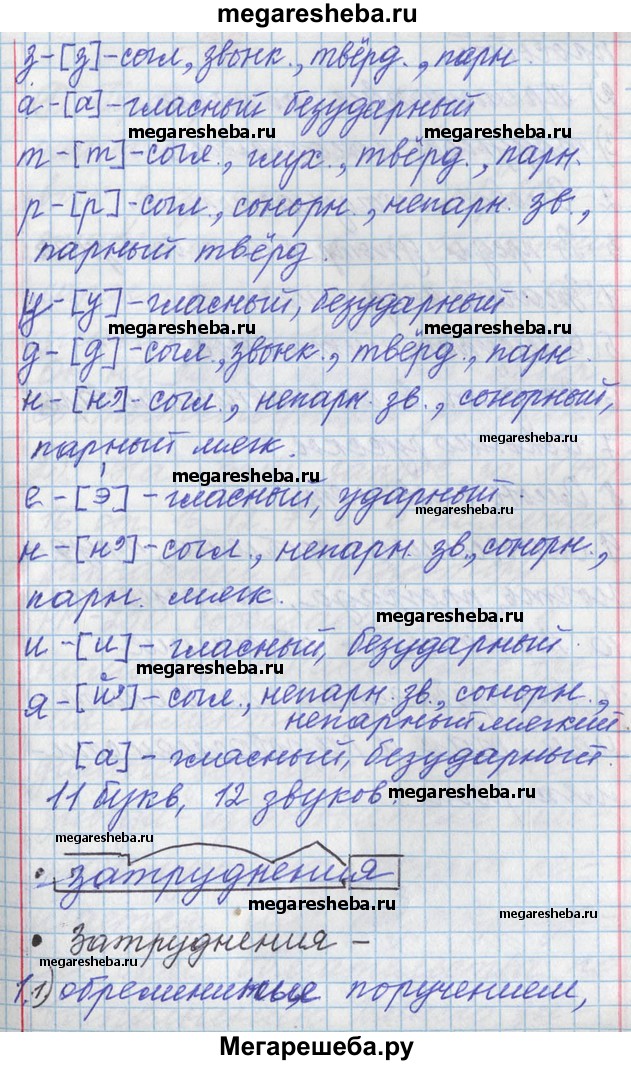 megaresheba.ru
з-[з]-согл, звонк., твёрд., парн.
а-[а]-гласный безударный
megaresheba.ru
megaresheba.ru
т-[т]-согл., глух., твёрд., парн.
р-[р]-согл, сонорн., непарн. зв.,
парный твёрд.
у-[у]-гласный, безударный
megaresheba.ru
megaresheba.ru
д-[д]-согл., звонк., твёрд., парн.
н-[н']-согл., непарн. зв., сонорный,
парный мягк.
megaresheba.ru
megaresheba.ru
е-[э́]-гласный, ударный
megaresheba.ru
н-[н']-согл., непарн. зв., сонорн.,
парн. мягк.
megaresheba.ru
и-[и]-гласный, безударный
megaresheba.ru
я-[й']-согл., непарн. зв., сонорн.,
непарный мягкий.
[а]-гласный, безударный
11 букв, 12 звуков.
megaresheba.ru
megaresheba.ru
• затруднения
megaresheba.ru
megaresheba.ru
• Затруднения –
megaresheba.ru
1.1) обременительное поручением,
megaresheba.ru
Мегарешеба.ру